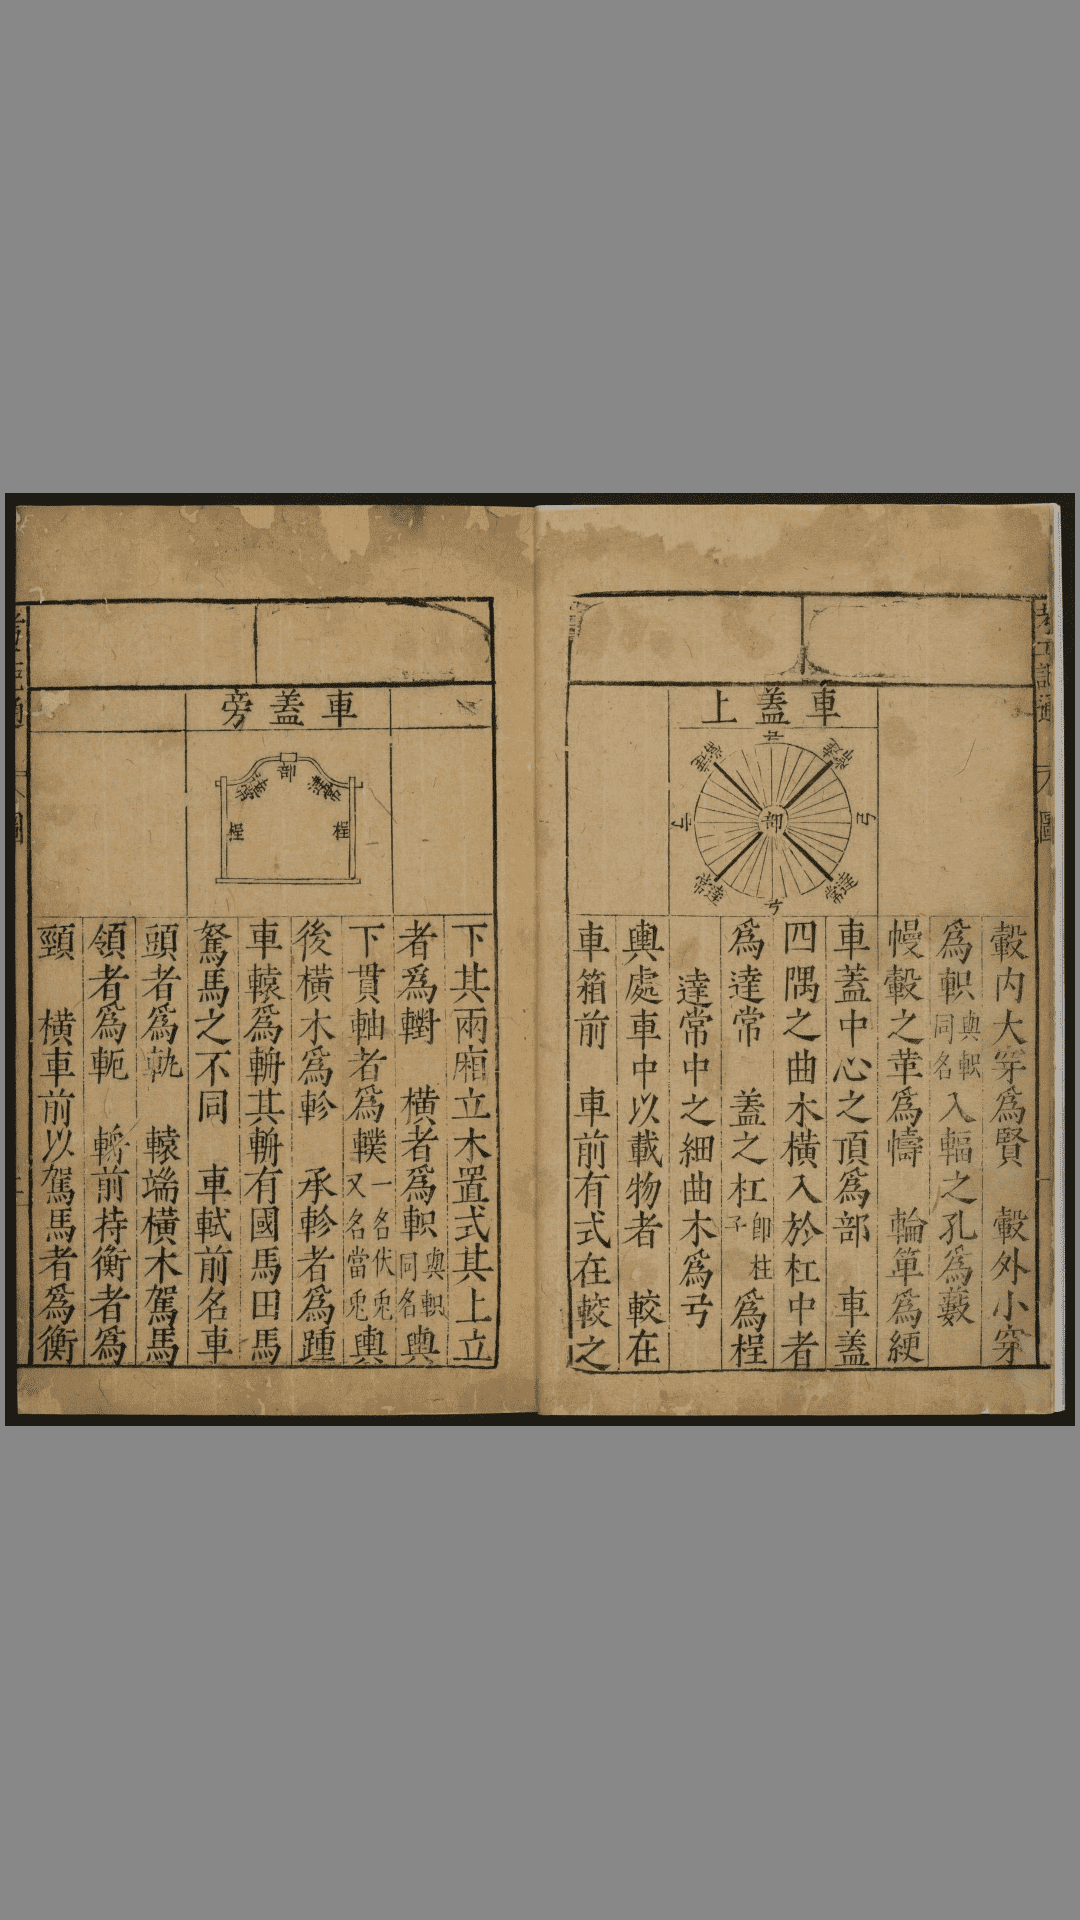 車蓋上
部
常達
常達
弓
弓
弓
轂內大穿爲賢　轂外小穿
爲軹與軹同名入輻之孔爲藪
幔轂之革爲幬　輪箄爲綆
車蓋中心之頂爲部　車蓋
四隅之曲木橫入於杠中者
爲達常　蓋之杠卽柱子爲桯
達常中之細曲木爲弓
輿處車中以載物者　較在
車箱前　車前有式在較之
車蓋旁
部
桯
桯
下其兩廂立木置式其上立
者爲轛　橫者爲軹與軹同名輿
下貫軸者爲轐一名伏兎又名當兎輿
後橫木爲軫　承軫者爲踵
車轅爲輈其輈有國馬田馬
駑馬之不同　車軾前名車
頭者爲軓　轅端橫木駕馬
領者爲軛　輈前持衡者爲
頸　橫車前以駕馬者爲衡